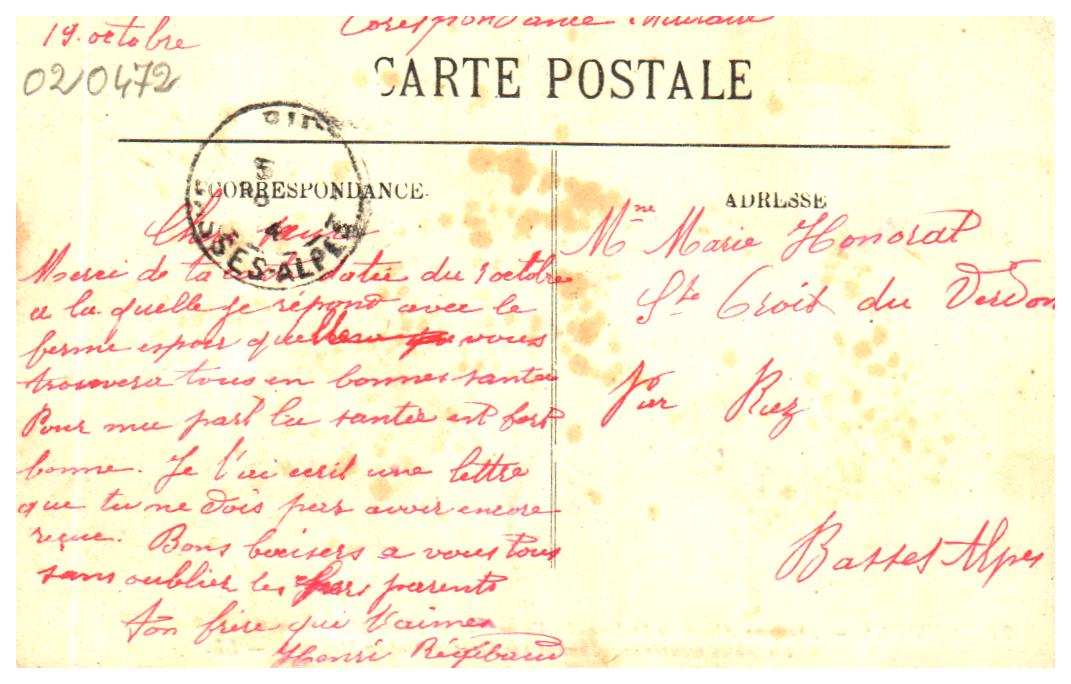 19. octobre
Corespondance militaire
020472
CARTE POSTALE
CORRESPONDANCE
ADRESSE
BASSES-ALPES
Merci de ta datée du 9 octobre
a la quelle je répond avec le
ferme espoir que vous
trouvera tous en bonnes santée
Pour ma part la santée est fort
bonne. Je t'ai ecrit une lettre
que tu ne dois pas avoir encore
reçue. Bons baisers a vous tous
sans oublier les parents
Ton frère que t'aimes
Henri Régibaud
Mme Marie Honorat
Ste Croix du Verdon
Par Riez
Basses Alpes